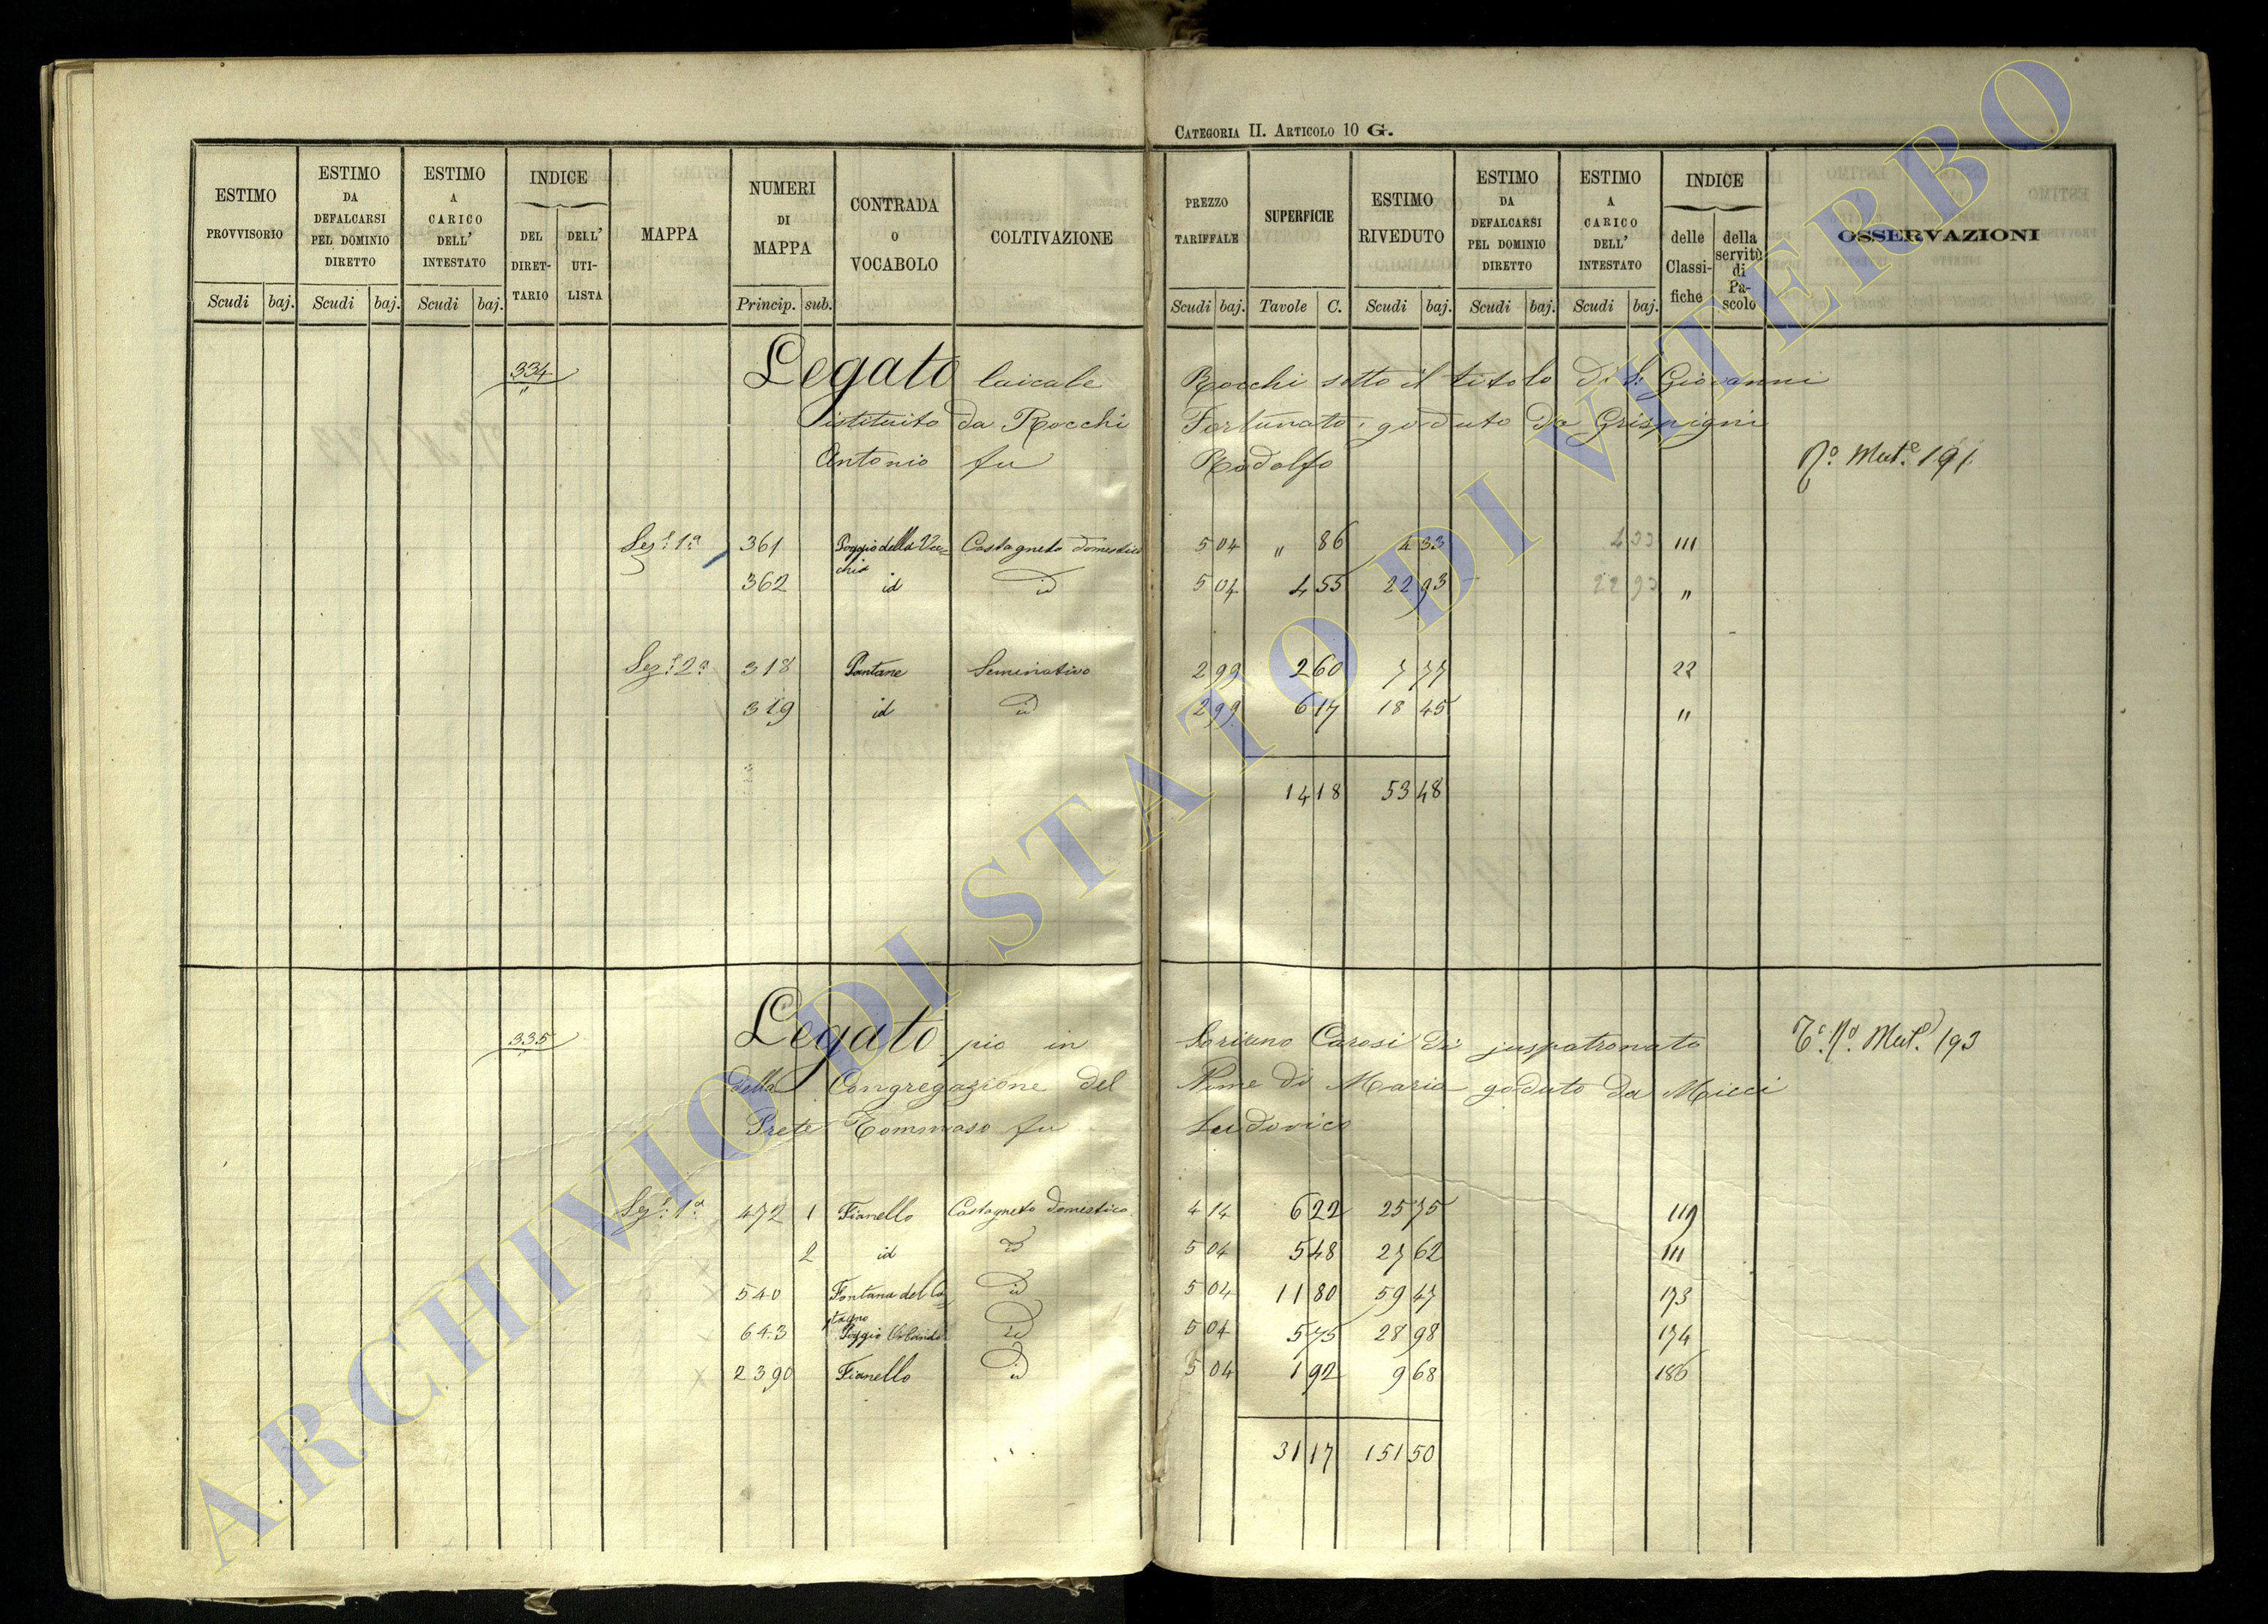 CATEGORIA II. ARTICOLO 10 G.
ESTIMO PROVVISORIO Scudi baj.
ESTIMO DA DEFALCARSI PEL DOMINIO DIRETTO Scudi baj.
ESTIMO A CARICO DELL' INTESTATO Scudi baj.
INDICE DEL DIRETTARIO DELL' UTILISTA
MAPPA
NUMERI DI MAPPA Princip. sub.
CONTRADA O VOCABOLO
COLTIVAZIONE
PREZZO TARIFFALE Scudi baj.
SUPERFICIE Tavole C.
ESTIMO RIVEDUTO Scudi baj.
ESTIMO DA DEFALCARSI PEL DOMINIO DIRETTO Scudi baj.
ESTIMO A CARICO DELL' INTESTATO Scudi baj.
INDICE delle Classifiche della servitù di Pascolo
OSSERVAZIONI
334 Legato laicale Rocchi sotto il titolo di S. Giovanni
istituito da Rocchi Fortunato, goduto da Grispigni
Antonio fu Rodolfo
N.º Mut.e 191
Sez.e 1.a 361 Poggio della Vecchia Castagneto domestico 5 04 " 86 4 33 4 33 111
362 id id 5 04 4 55 22 93 22 93 "
Sez.e 2.a 318 Pantane Seminativo 2 99 2 60 7 77 22
319 id id 2 99 6 17 18 45 "
14 18 53 48
335 Legato pio in Soriano Carosi di juspatronato
della Congregazione del Nome di Maria goduto da Micci
Prete Tommaso fu Ludovico
N.º Mut.e 193
Sez.e 1.a 472 1 Fianello Castagneto domestico 4 14 6 22 25 75 119
2 id id 5 04 5 48 27 62 111
540 Fontana del Castagno id 5 04 11 80 59 47 173
643 Poggio Orlando id 5 04 5 75 28 98 174
2390 Fianello id 5 04 1 92 9 68 186
31 17 151 50
ARCHIVIO DI STATO DI VITERBO